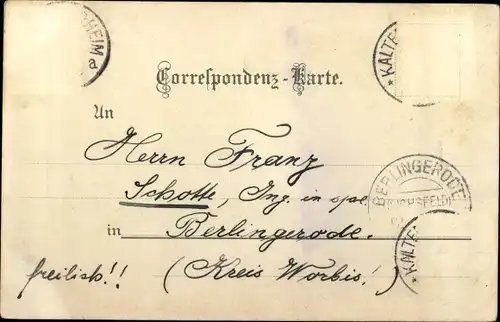 SHEIM
a
* KALTE
Correspondenz-Karte.
An
Herrn Franz
Schotte, Ing. in spe
BERLINGERODE
(EICHSFELD)
in Berlingerode.
* KALTE
freilich!! (Kreis Worbis!)